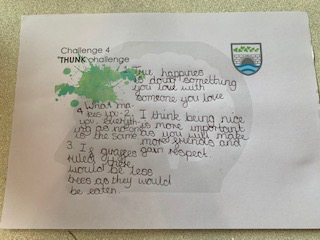 Challenge 4
THUNK challenge
1. True happines
is doing something
you love with
someone you love
4 What ma-
kes you
you. Everyth-
ing as no one
is the same
2. I think being nice
is more important
as you will make
more friends and
gain respect
3 If giraffes
ruled
there
would be less
trees as they would
be eaten.